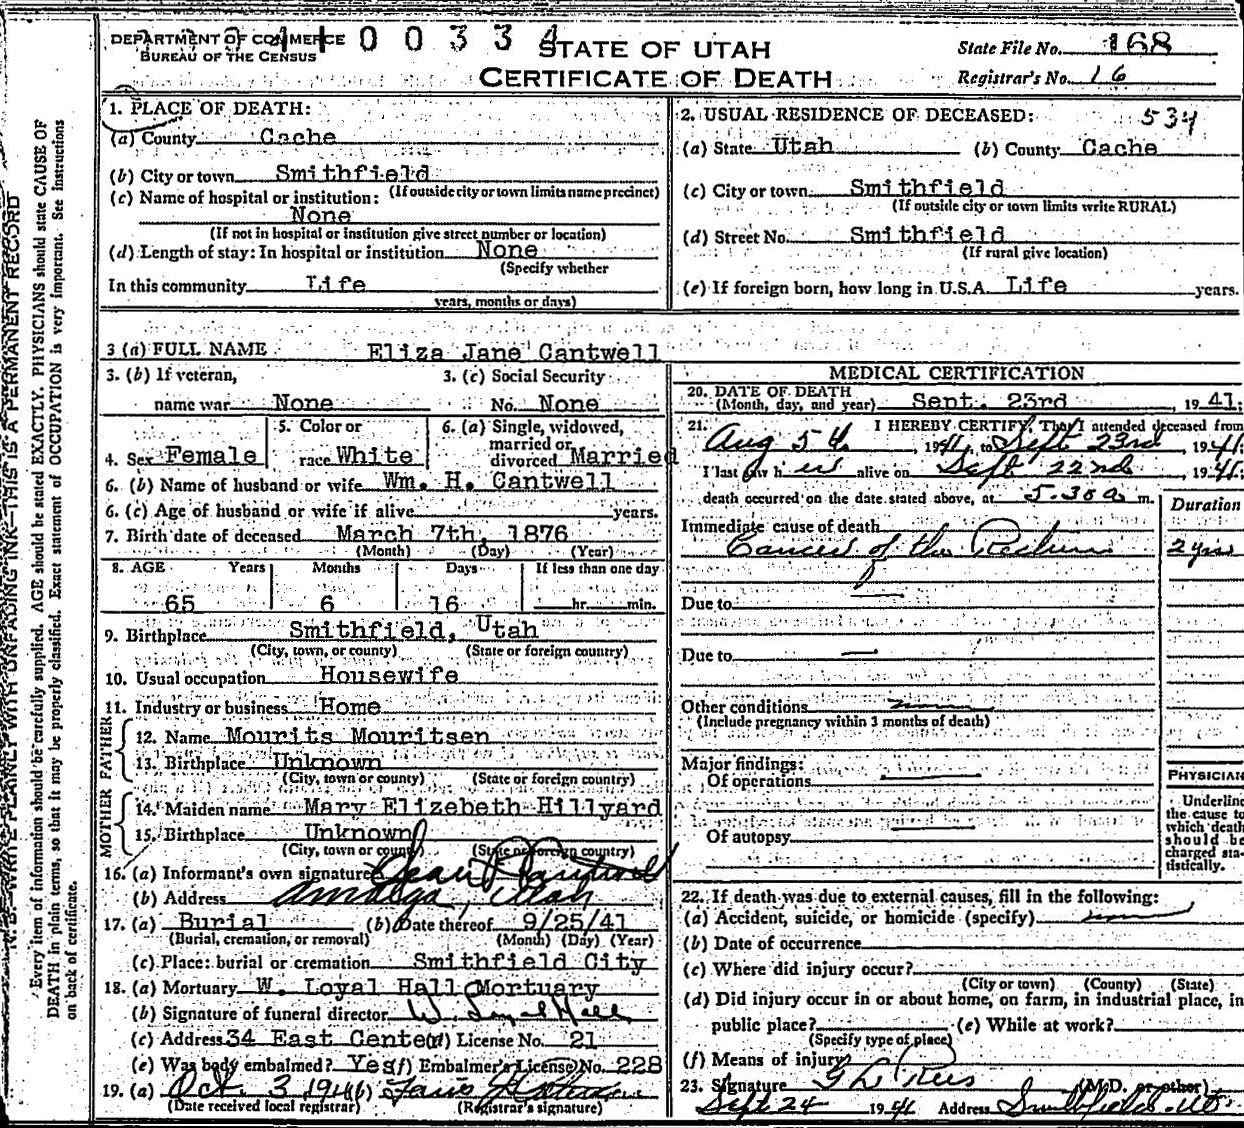 DEPARTMENT OF COMMERCE
BUREAU OF THE CENSUS
00334
STATE OF UTAH
CERTIFICATE OF DEATH
State File No. 168
Registrar's No. 16
1. PLACE OF DEATH:
(a) County Cache
(b) City or town Smithfield
(If outside city or town limits name precinct)
(c) Name of hospital or institution:
None
(If not in hospital or institution give street number or location)
(d) Length of stay: In hospital or institution None
(Specify whether
In this community Life
years, months or days)
2. USUAL RESIDENCE OF DECEASED: 534
(a) State Utah (b) County Cache
(c) City or town Smithfield
(If outside city or town limits write RURAL)
(d) Street No. Smithfield
(If rural give location)
(e) If foreign born, how long in U.S.A. Life years.
3 (a) FULL NAME Eliza Jane Cantwell
3. (b) If veteran, 3. (c) Social Security
name war None No. None
4. Sex Female
5. Color or
race White
6. (a) Single, widowed,
married or
divorced Married
6. (b) Name of husband or wife Wm. H. Cantwell
6. (c) Age of husband or wife if alive years.
7. Birth date of deceased March 7th, 1876
(Month) (Day) (Year)
8. AGE Years Months Days If less than one day
65 6 16 hr. min.
9. Birthplace Smithfield, Utah
(City, town, or county) (State or foreign country)
10. Usual occupation Housewife
11. Industry or business Home
FATHER
12. Name Mourits Mouritsen
13. Birthplace Unknown
(City, town or county) (State or foreign country)
MOTHER
14. Maiden name Mary Elizebeth Hillyard
15. Birthplace Unknown
(City, town or county) (State or foreign country)
16. (a) Informant's own signature Cantwell
(b) Address Amalga, Utah
17. (a) Burial (b) Date thereof 9/25/41
(Burial, cremation, or removal) (Month) (Day) (Year)
(c) Place: burial or cremation Smithfield City
18. (a) Mortuary W. Loyal Hall Mortuary
(b) Signature of funeral director W. Loyal Hall
(c) Address 34 East Center (d) License No. 21
(e) Was body embalmed? Yes (f) Embalmer's License No. 228
19. (a) Oct. 3, 1941 (b)
(Date received local registrar) (Registrar's signature)
MEDICAL CERTIFICATION
20. DATE OF DEATH
(Month, day, and year) Sept. 23rd, 1941.
21. I HEREBY CERTIFY, That I attended deceased from
Aug 5th, 1941, to Sept 23rd, 1941.
I last saw her alive on Sept 22nd, 1941.
death occurred on the date stated above, at 5:30 a m.
Duration
Immediate cause of death
Cancer of the Rectum 2 yrs
Due to —
Due to —
Other conditions none
(Include pregnancy within 3 months of death)
Major findings:
Of operations —
Of autopsy —
PHYSICIAN
Underline
the cause to
which death
should be
charged sta-
tistically.
22. If death was due to external causes, fill in the following:
(a) Accident, suicide, or homicide (specify) none
(b) Date of occurrence
(c) Where did injury occur?
(City or town) (County) (State)
(d) Did injury occur in or about home, on farm, in industrial place, in
public place? (e) While at work?
(Specify type of place)
(f) Means of injury
23. Signature G L Rees (M.D. or other)
Sept 24 1941 Address Smithfield - Ut.
N. B.—WRITE PLAINLY WITH UNFADING INK—THIS IS A PERMANENT RECORD
Every item of information should be carefully supplied. AGE should be stated EXACTLY. PHYSICIANS should state CAUSE OF
DEATH in plain terms, so that it may be properly classified. Exact statement of OCCUPATION is very important. See instructions
on back of certificate.